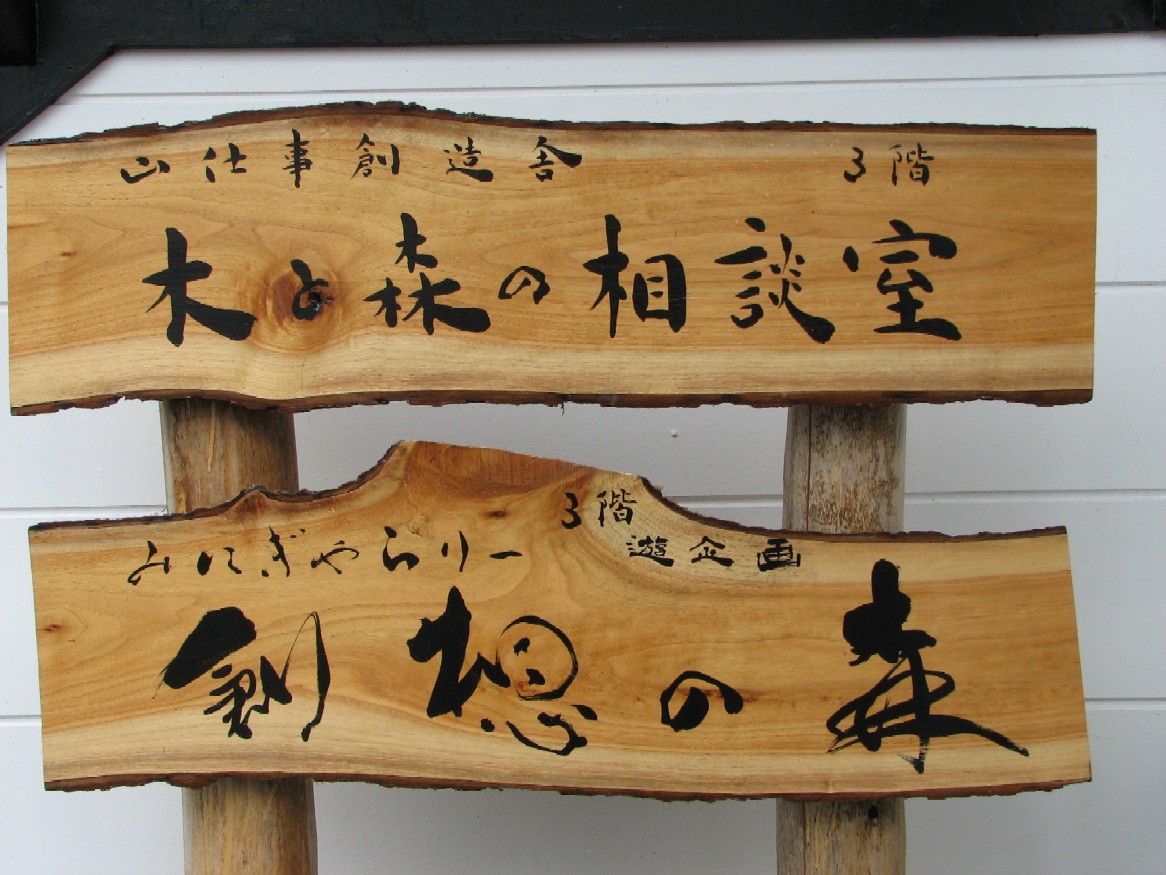 山仕事創造舎 3階
木と森の相談室
みにぎゃらりー 3階 遊企画
創想の森